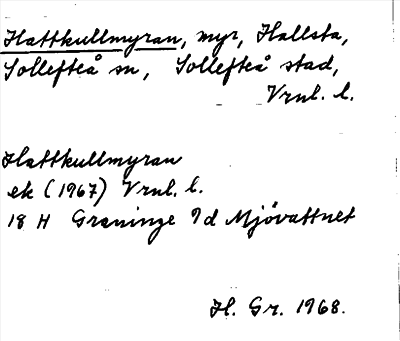 Hattkullmyran, myr, Hallsta,
Sollefteå sn, Sollefteå stad,
Vrnl. l.
Hattkullmyran
ek (1967) Vrnl. l.
18 H Graninge 9d Mjövattnet
H. Gr. 1968.